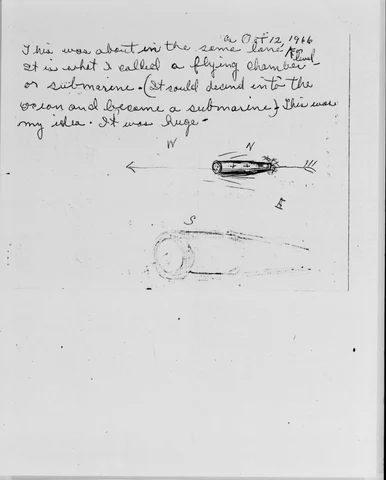 on Oct 12, 1966
This was about in the same lane
It is what I called a flying chamber
or submarine. (It could decend into the
ocean and become a submarine) This was
my idea. It was huge.
W N
E
S